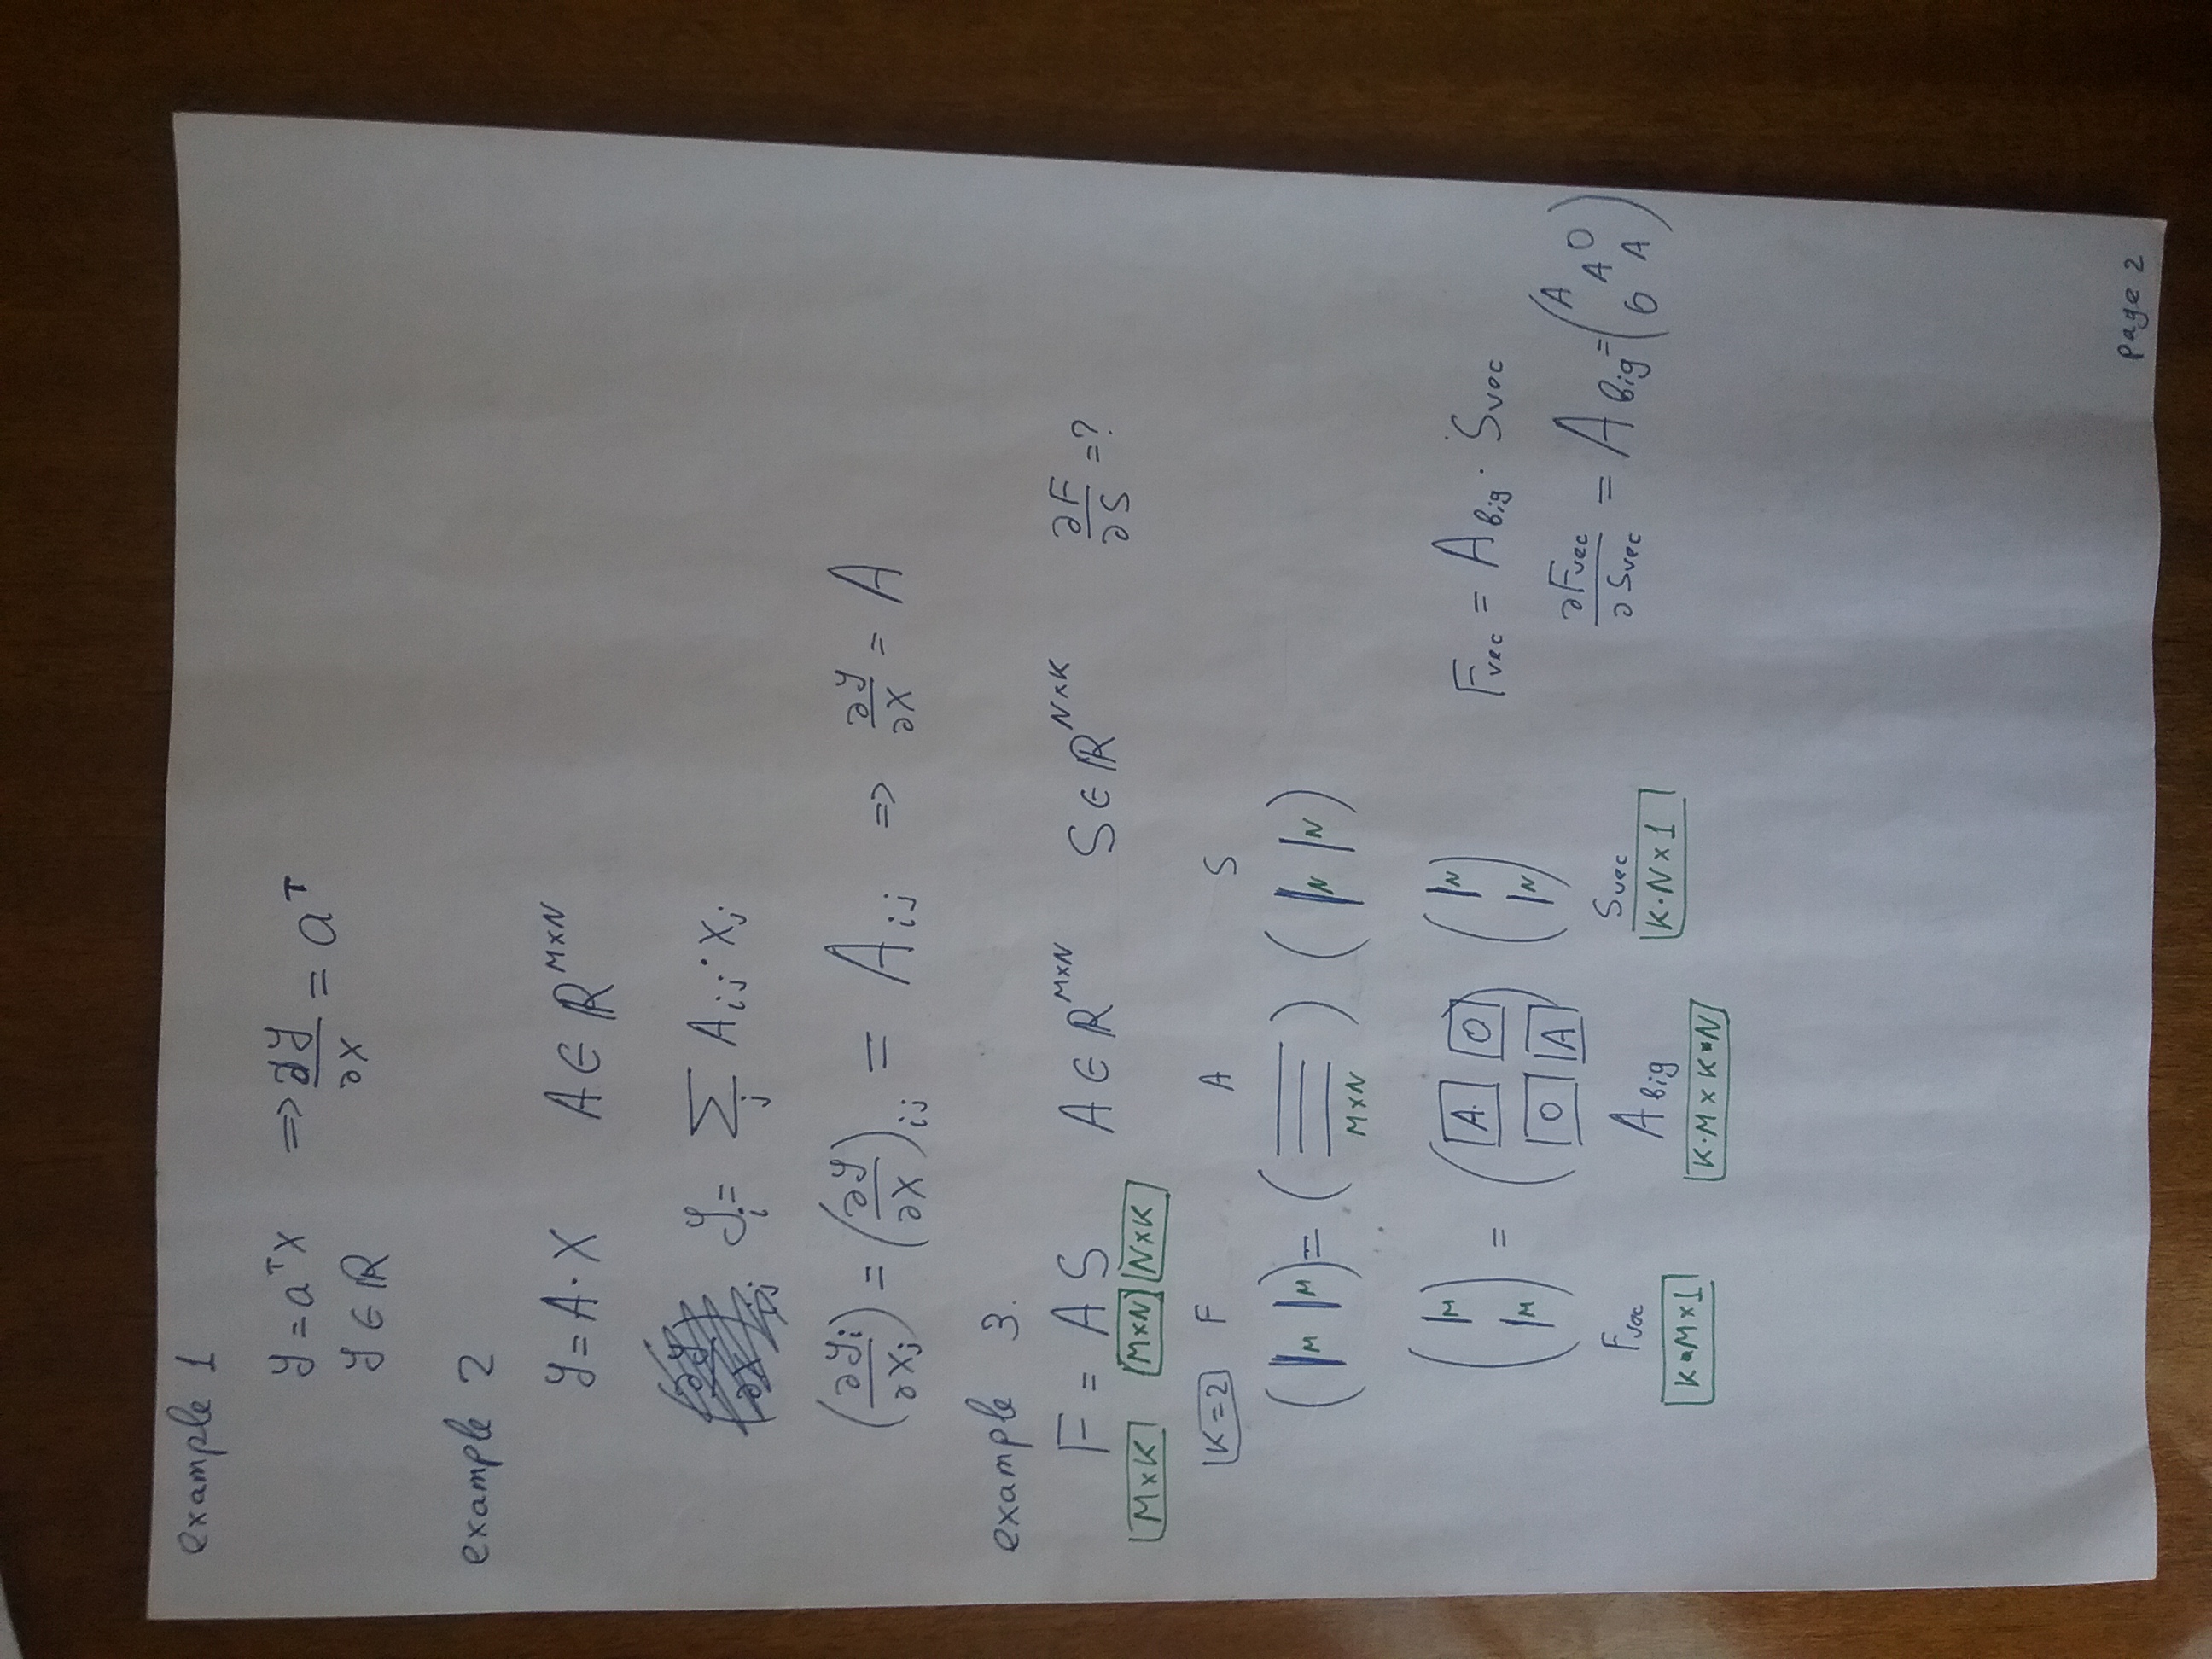 example 1
y = aᵀx => ∂y/∂x = aᵀ
y ∈ ℝ
example 2
y = A · x A ∈ ℝ^{M×N}
y_i = Σ_j A_{ij} · x_j
(∂y_i/∂x_j) = (∂y/∂x)_{ij} = A_{ij} => ∂y/∂x = A
example 3.
F = A S A ∈ ℝ^{M×N} S ∈ ℝ^{N×K} ∂F/∂S = ?
M×K M×N N×K
K=2 F A S
(|M |M) = (≡) (|N |N)
M×N
(|M |M) = (A 0 0 A) (|N |N) F_vec = A_big · S_vec
F_vec A_big S_vec ∂F_vec/∂S_vec = A_big = (A A 0 0 A)
K·M×1 K·M×K·N K·N×1
page 2